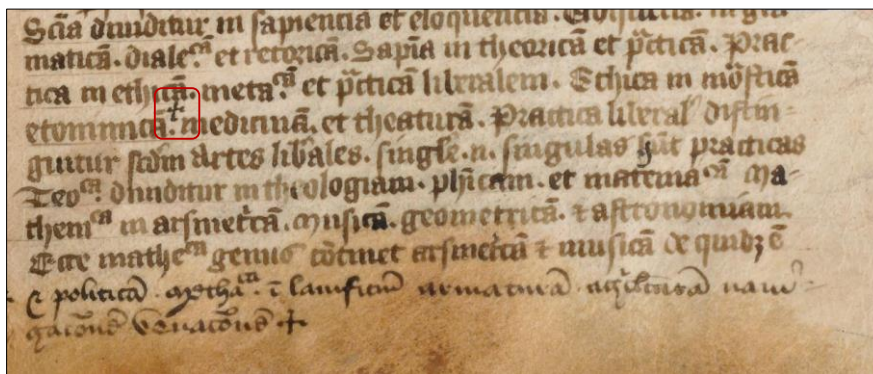 Scīa diuiditur in sapiencia et eloquencia. Eloquencia. in gra
maticā. diale.cā et retoricā. Sapīa in theoricā et p̄cticā. Prac-
tica in ethicā. meta.cā et p̄cticā liberalem. Ethica in mōsticā
etominicā. + medicinā. et theaturā. Practica liberal' distin-
guitur scdm artes lib̄ales. single .n. singulas hūt practicas
Teo.ca diuiditur in theologiam. phīcam. et matemacā Ma-
themca in arsmet̄cā. Musicā. geometricā. ⁊ astronomiam.
Ecce mathe.ca genus cōtinet arsmet̄cā ⁊ musicā de quibꝫ ē
⁊ politicā. Methacā. ī lanificiū armaturā agͥcl̄turā naui-
gacōnē venacōnē +